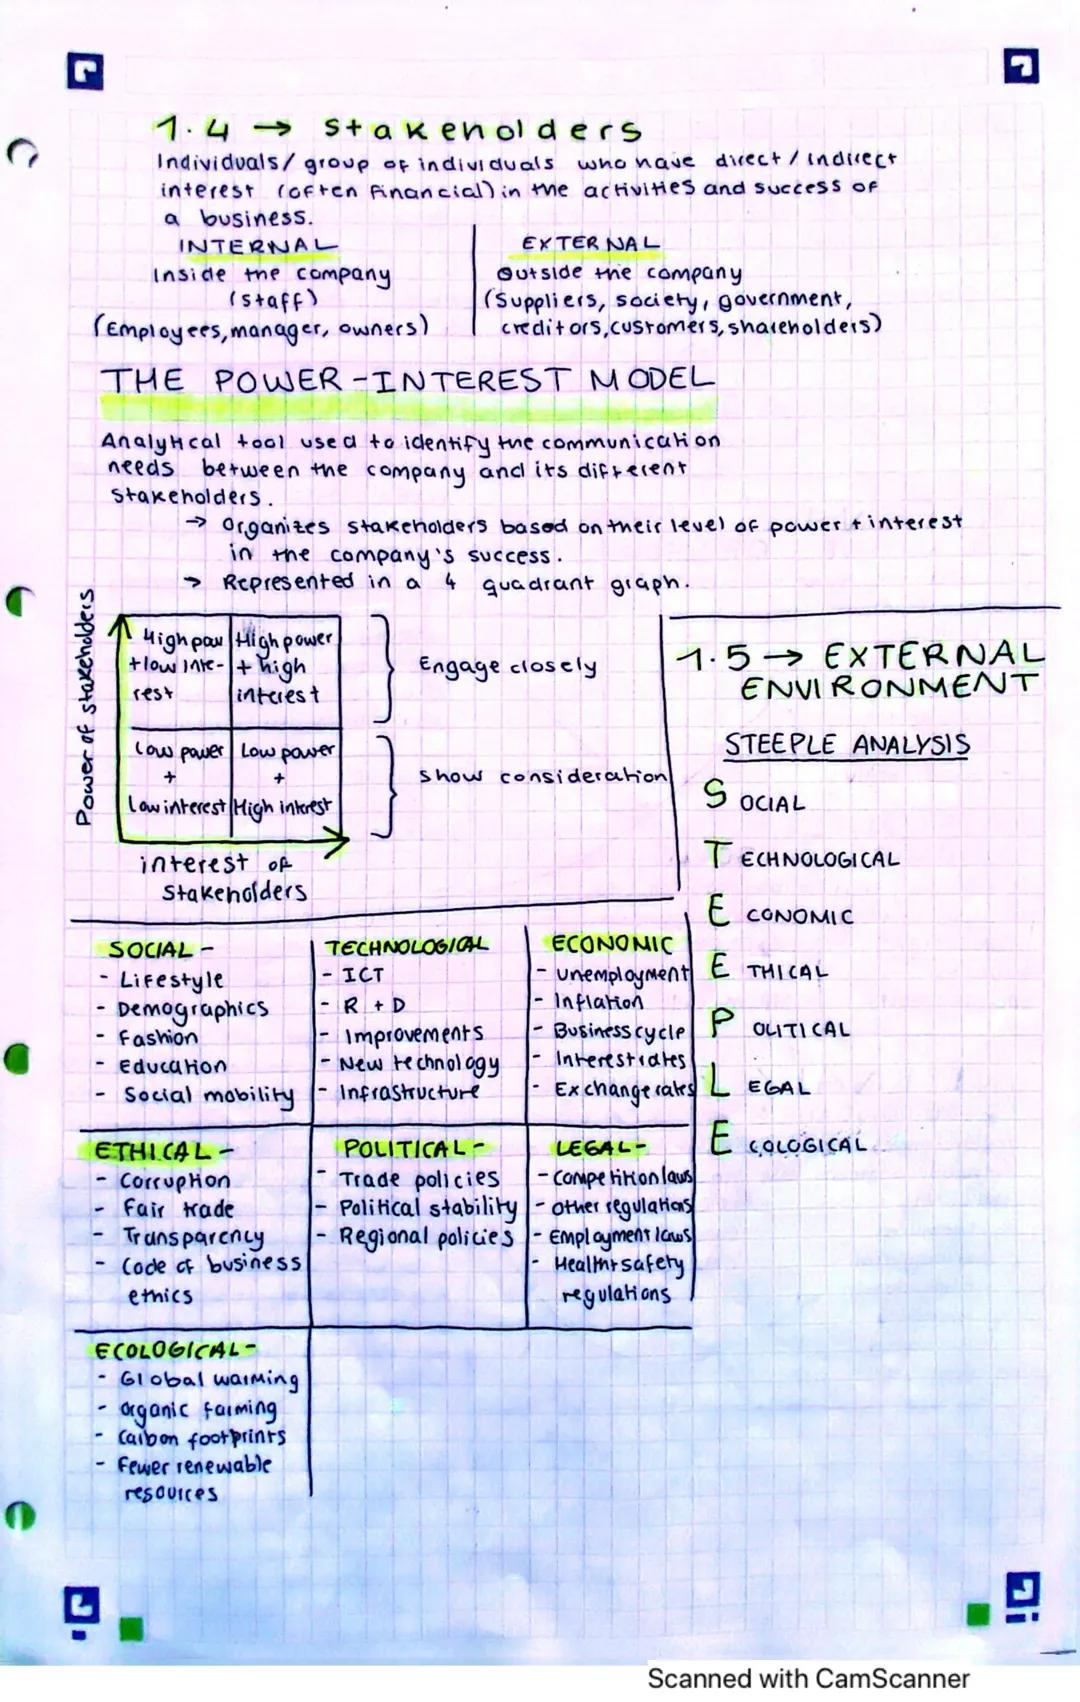 1.4 → Stakeholders
Individuals/ group of individuals who have direct / indirect
interest (often financial) in the activities and success of
a business.
INTERNAL
Inside the company
(staff)
(Employees, manager, owners)
EXTERNAL
Outside the company
(Suppliers, society, government,
creditors, customers, shareholders)
THE POWER-INTEREST MODEL
Analytical tool used to identify the communication
needs between the company and its different
stakeholders.
→ Organizes stakeholders based on their level of power + interest
in the company's success.
→ Represented in a 4 quadrant graph.
Power of stakeholders
High pow
+ low inte-
rest
High power
+ high
interest
Engage closely
Low power
+
Low interest
Low power
+
High interest
Show consideration
interest of
Stakeholders
1.5 → EXTERNAL
ENVIRONMENT
STEEPLE ANALYSIS
SOCIAL
TECHNOLOGICAL
ECONOMIC
ETHICAL
POLITICAL
LEGAL
ECOLOGICAL
SOCIAL -
- Lifestyle
- Demographics
- Fashion
- Education
- Social mobility
TECHNOLOGICAL
- ICT
- R + D
- Improvements
- New technology
- Infrastructure
ECONOMIC
- Unemployment
- Inflation
- Business cycle
- Interest rates
- Exchange rates
ETHICAL -
- Corruption
- Fair trade
- Transparency
- Code of business
ethics
POLITICAL -
- Trade policies
- Political stability
- Regional policies
LEGAL -
- Competition laws
- Other regulations
- Employment laws
- Health + safety
regulations
ECOLOGICAL -
- Global warming
- Organic farming
- Carbon footprints
- Fewer renewable
resources
Scanned with CamScanner